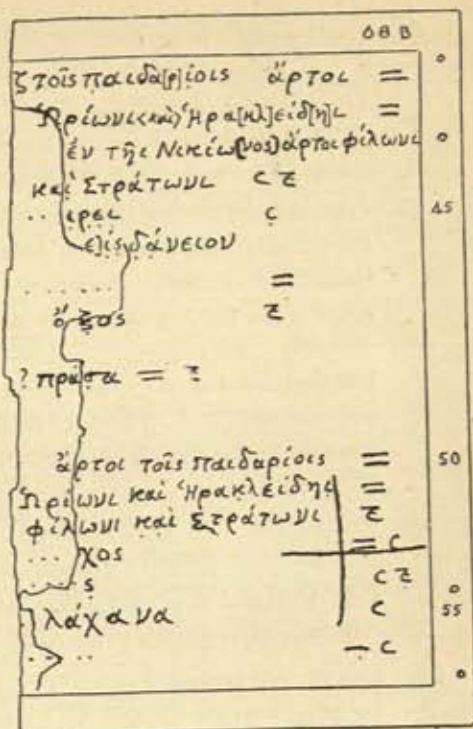 Ο Β Β
ζ τοῖς παιδα[ρ]ίοις ἄρτοι =
Ὠρίωνι <καὶ> Ἡρα[κλ]είδ[η]ι =
ἐν τῆι Νικίω[νος] ἄρτοι φίλωνι
καὶ Στράτωνι c ζ
. . ιρει c 45
ε]ἰς δάνειον
. . . . . . =
ὄξος ζ
? πράσα = ζ
ἄρτοι τοῖς παιδαρίοις = 50
Ὠρίωνι καὶ Ἡρακλείδηι =
φίλωνι καὶ Στράτωνι ζ
. . . χος = c
. . . . ς c ζ
λάχανα c 55
. . . . — c